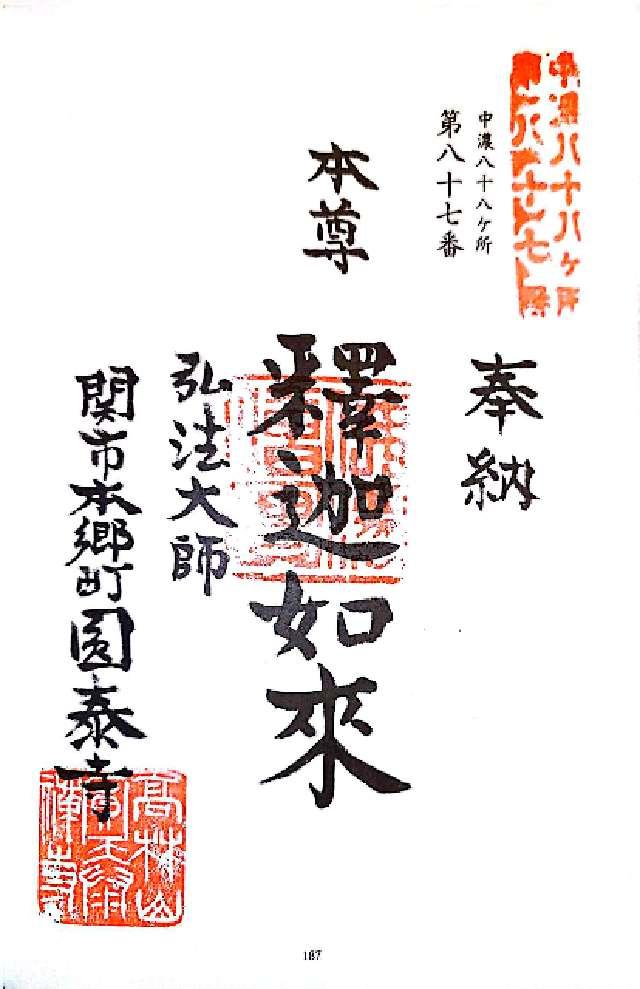 中濃八十八ヶ所
第八十七番
中濃八十八ヶ所
第八十七番
奉納
本尊
釋迦如來
弘法大師
関市本郷町圓泰寺
高林山
禅寺
187